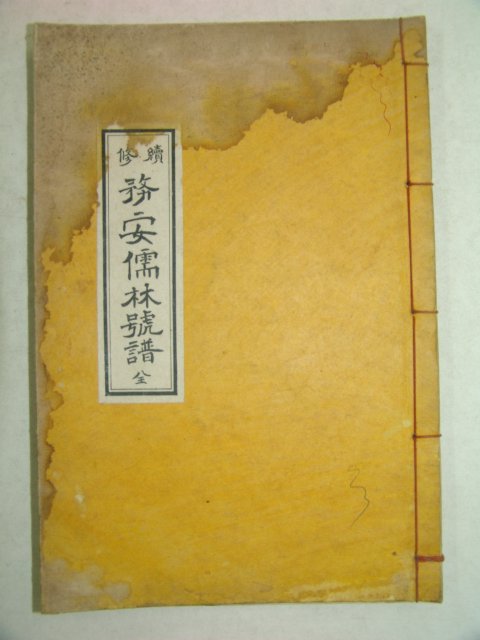 續修
務安儒林號譜
全